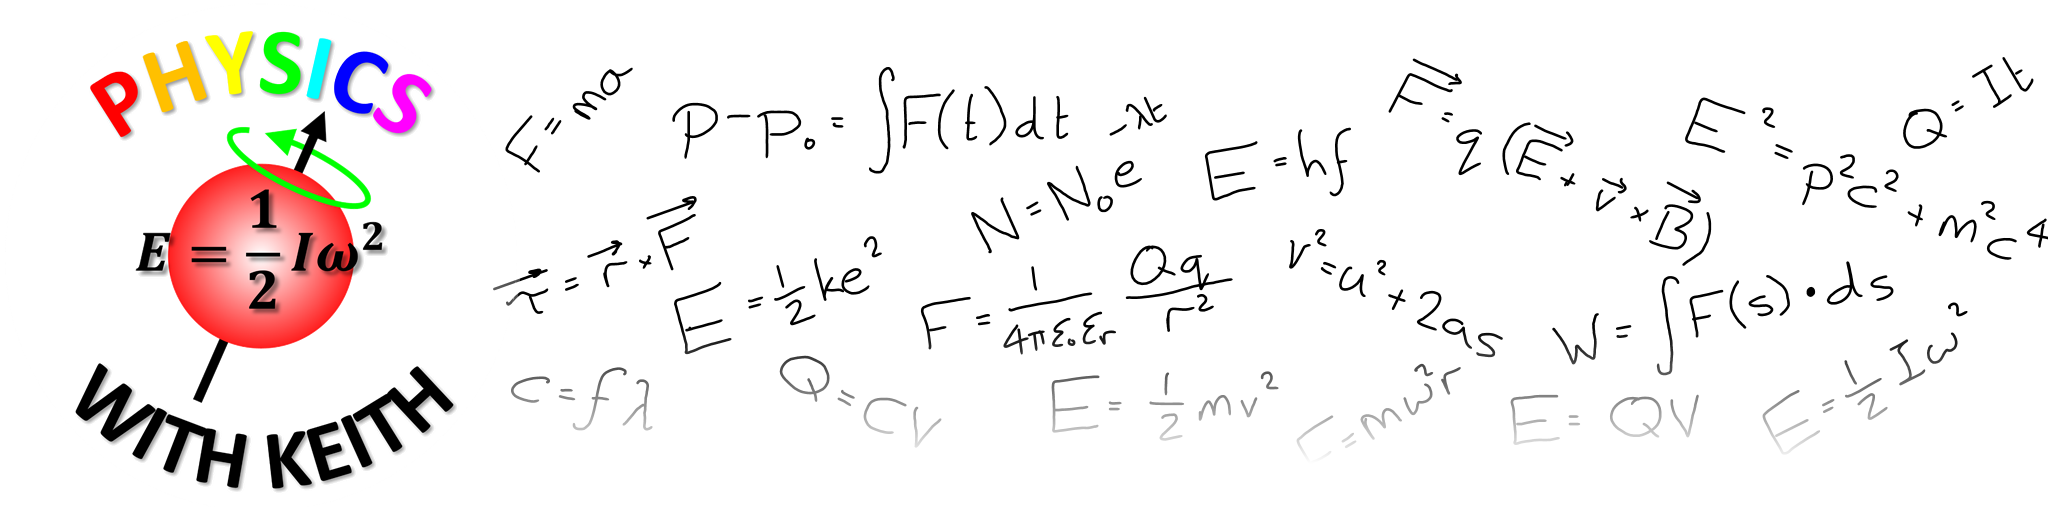 PHYSICS
E = 1/2 Iω²
WITH KEITH
F=ma
p-p₀ = ∫F(t)dt
N=N₀e^-λt
E=hf
F⃗=q(E⃗+v⃗×B⃗)
E²=p²c²+m²c⁴
Q=It
τ⃗=r⃗×F⃗
E=1/2ke²
F=1/4πε₀εr Qq/r²
v²=u²+2as
W=∫F(s)·ds
c=fλ
Q=CV
E=1/2mv²
F=mω²r
E=QV
E=1/2Iω²